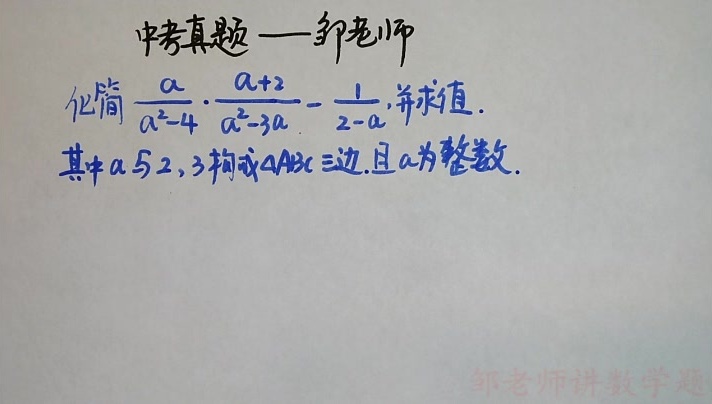 中考真题——邹老师
化简 a/(a²-4) · (a+2)/(a²-3a) - 1/(2-a),并求值.
其中a与2,3构成△ABC三边.且a为整数.
邹老师讲数学题